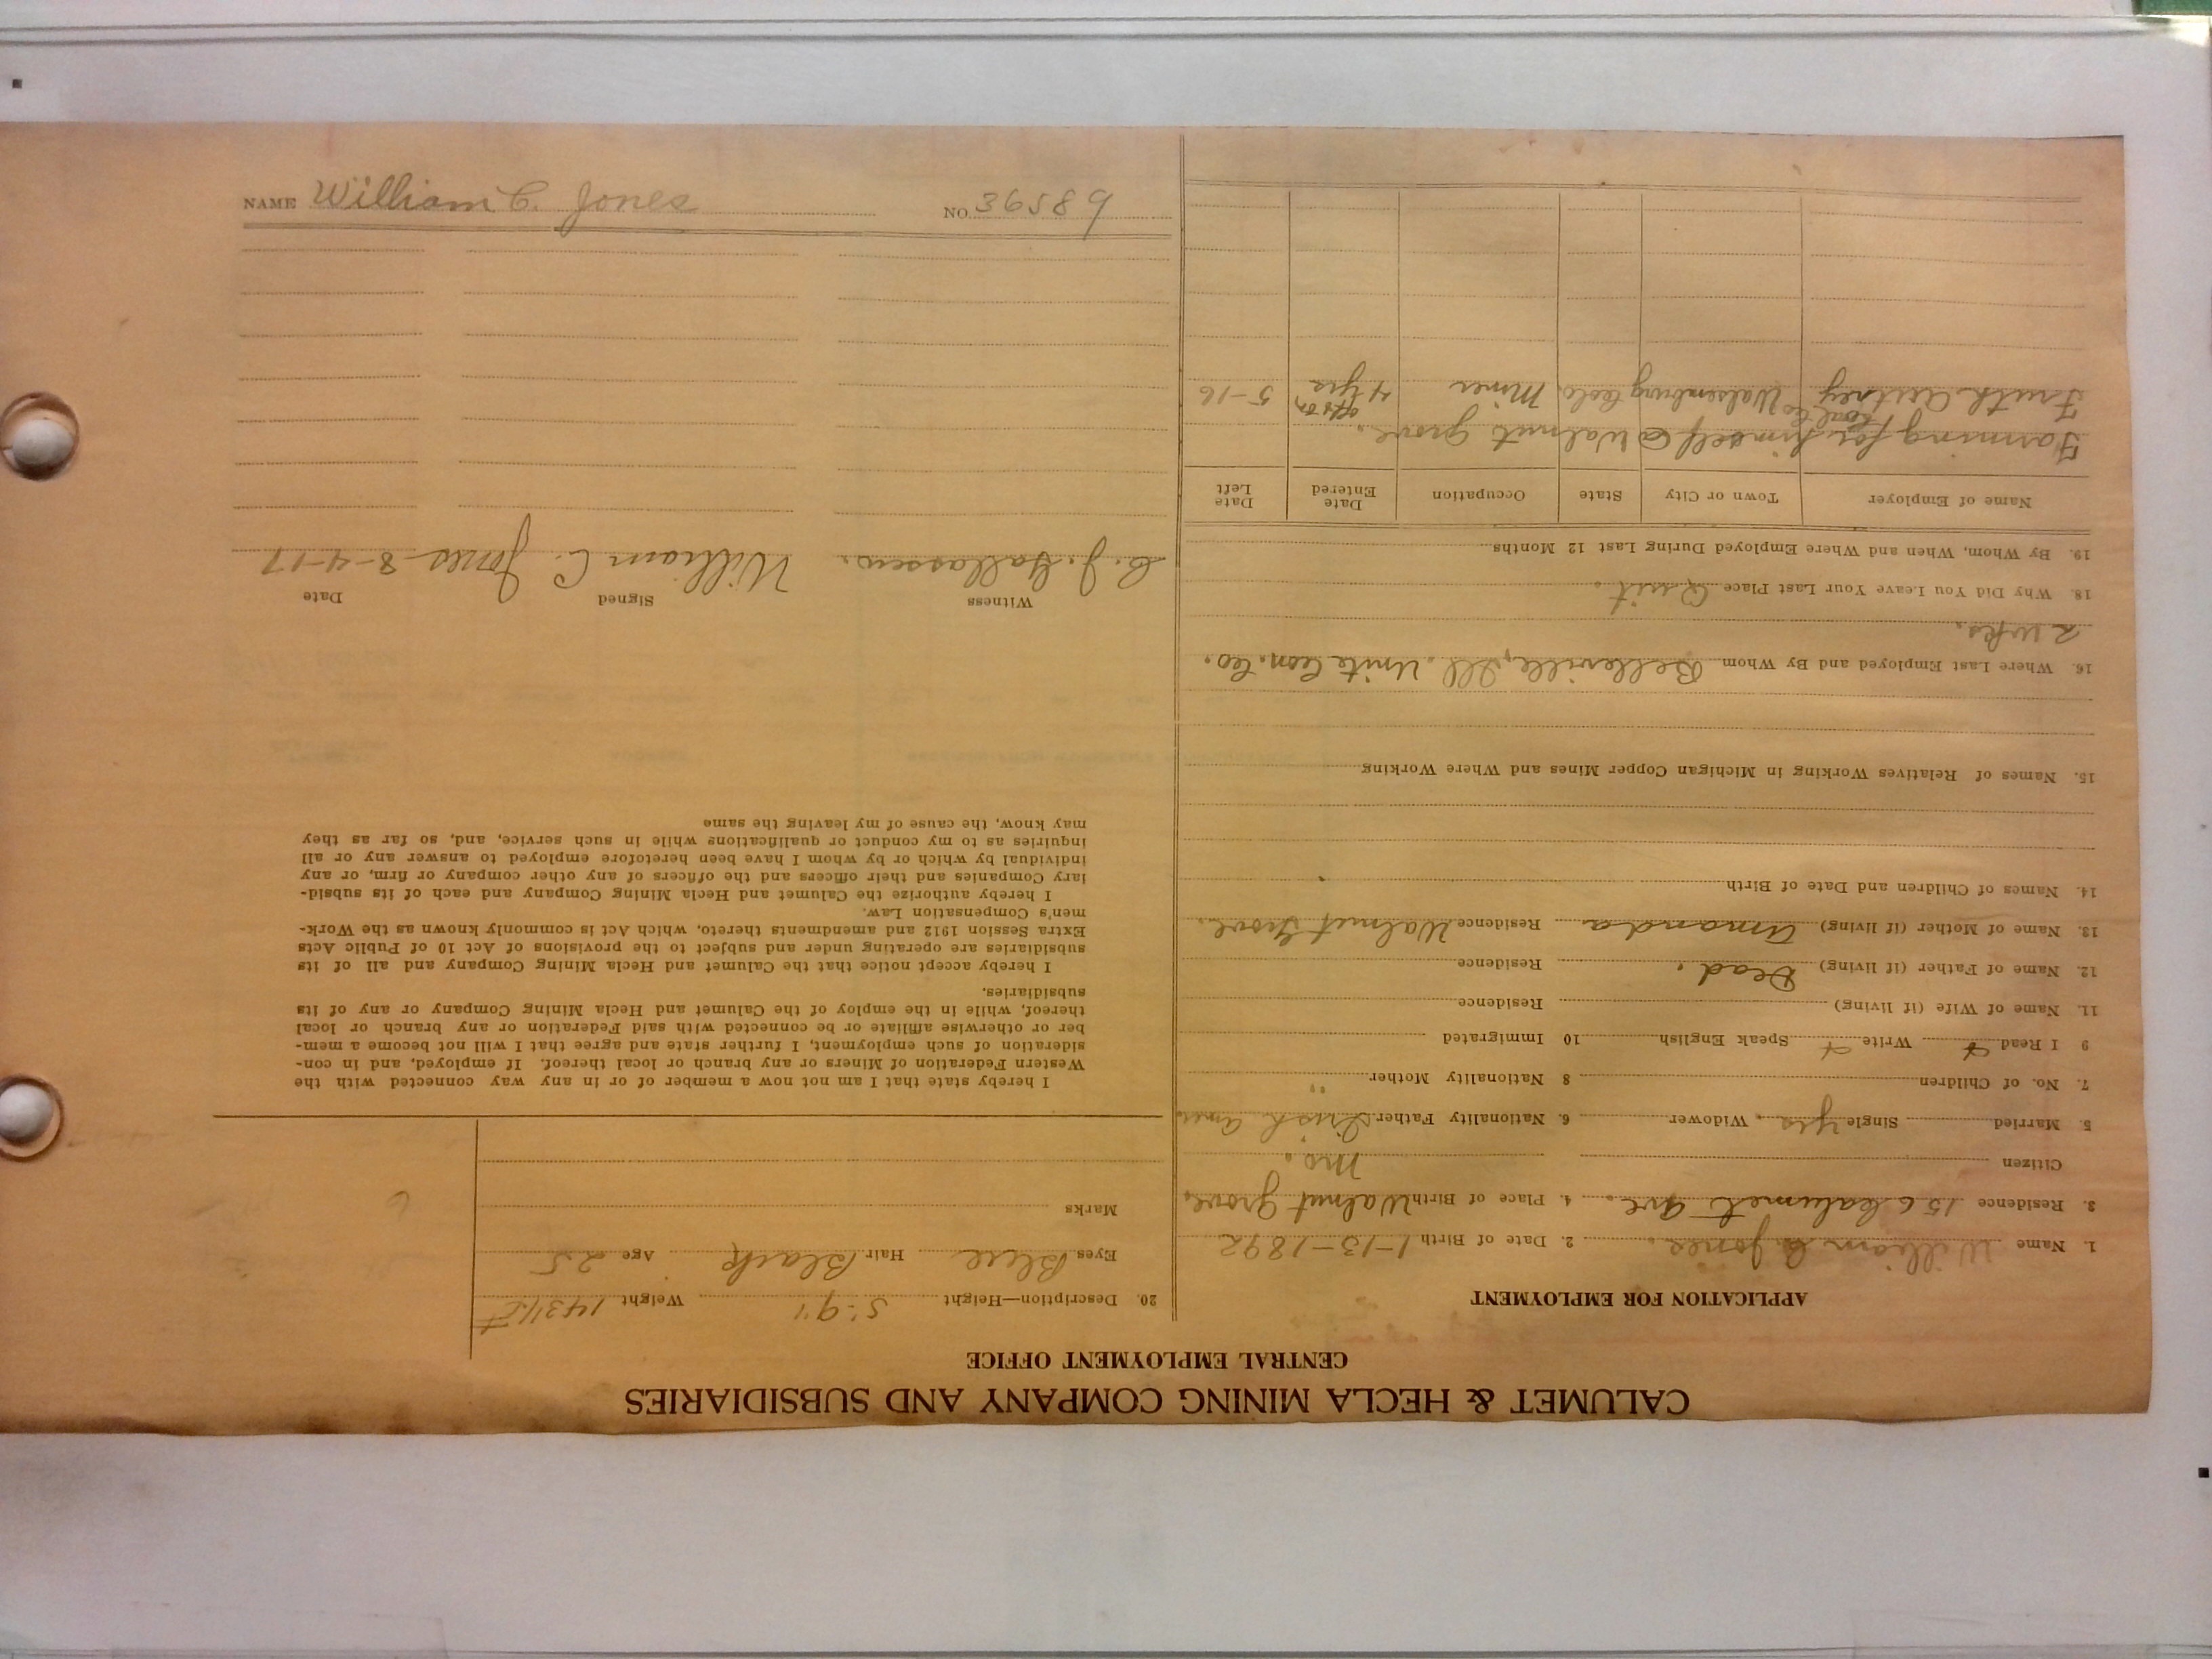 CALUMET & HECLA MINING COMPANY AND SUBSIDIARIES
CENTRAL EMPLOYMENT OFFICE
APPLICATION FOR EMPLOYMENT
1. Name William C. Jones. 2. Date of Birth 1-13-1892
3. Residence 156 Calumet Ave. 4. Place of Birth Walnut Grove,
Citizen Mo.
5. Married Single Yes, Widower 6. Nationality Father Irish Amer.
7. No. of Children 8 Nationality Mother " "
9 I Read Write Speak English 10 Immigrated
11. Name of Wife (if living) Residence
12. Name of Father (if living) Dead. Residence
13. Name of Mother (if living) Amanda Residence Walnut Grove.
14. Names of Children and Date of Birth
15. Names of Relatives Working in Michigan Copper Mines and Where Working
16. Where Last Employed and By Whom Belleville, Ill. Unite Con. Co.
2 wks.
18. Why Did You Leave Your Last Place Quit.
19. By Whom, When and Where Employed During Last 12 Months
Name of Employer Town or City State Occupation Date Entered Date Left
Farming for himself @ Walnut Grove.
Coal Co Walsenburg Colo. Miner off & on 4 yrs 5-16
20. Description—Height 5'-9" Weight 143
Eyes Blue Hair Black Age 25
Marks
I hereby state that I am not now a member of or in any way connected with the
Western Federation of Miners or any branch or local thereof. If employed, and in con-
sideration of such employment, I further state and agree that I will not become a mem-
ber or otherwise affiliate or be connected with said Federation or any branch or local
thereof, while in the employ of the Calumet and Hecla Mining Company or any of its
subsidiaries.
I hereby accept notice that the Calumet and Hecla Mining Company and all of its
subsidiaries are operating under and subject to the provisions of Act 10 of Public Acts
Extra Session 1912 and amendments thereto, which Act is commonly known as the Work-
men's Compensation Law.
I hereby authorize the Calumet and Hecla Mining Company and each of its subsid-
iary Companies and their officers and the officers of any other company or firm, or any
individual by which or by whom I have been heretofore employed to answer any or all
inquiries as to my conduct or qualifications while in such service, and, so far as they
may know, the cause of my leaving the same
Witness Signed Date
C. J. William C. Jones 8-4-17
NAME William C. Jones NO. 36589